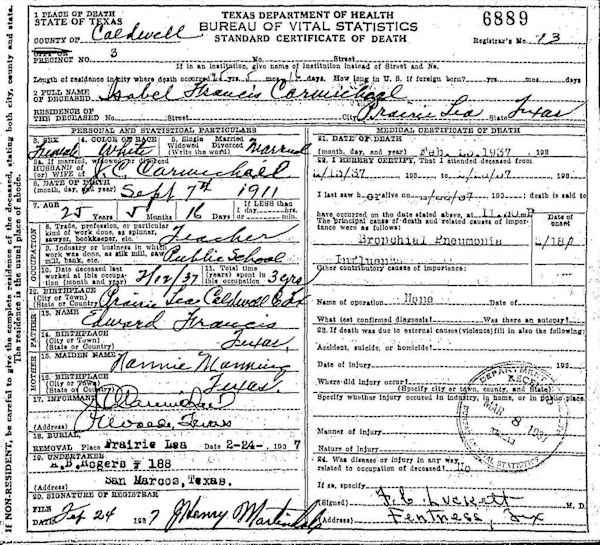 1 PLACE OF DEATH
STATE OF TEXAS
COUNTY OF Caldwell
TEXAS DEPARTMENT OF HEALTH
BUREAU OF VITAL STATISTICS
STANDARD CERTIFICATE OF DEATH
6889
Registrar's No. 13
CITY OR
PRECINCT NO. 3 No. Street
If in an institution, give name of institution instead of Street and No.
Length of residence in city where death occurred 25 yrs. 5 mos. 16 days. How long in U. S. if foreign born? yrs. mos. days
2 FULL NAME OF DECEASED Isabel Francis Carmichael
RESIDENCE OF THE DECEASED No. Street City Prairie Lea State Texas
PERSONAL AND STATISTICAL PARTICULARS
3. SEX Female
4. COLOR OR RACE White
5. Single Married Widowed Divorced (Write the word) Married
5a. If married, widowed or divorced HUSBAND OF (or) WIFE OF J. C. Carmichael
6. DATE OF BIRTH (month, day, and year) Sept 7th 1911
7. AGE 25 Years 5 Months 16 Days If LESS than 1 day, hrs. min.
OCCUPATION
8. Trade, profession, or particular kind of work done, as spinner, sawyer, bookkeeper, etc. Teacher
9. Industry or business in which work was done, as silk mill, saw mill, bank, etc. Public School
10. Date deceased last worked at this occupation (month and year) 2/12/37
11. Total time (years) spent in this occupation 3 yrs
12. BIRTHPLACE (City or Town) (State or Country) Prairie Lea Caldwell Co Tex
FATHER
13. NAME Edward Francis
14. BIRTHPLACE (City or Town) (State or Country) Texas
MOTHER
15. MAIDEN NAME Nannie Manning
16. BIRTHPLACE (City or Town) (State or Country) Texas
17. INFORMANT J C Carmichael
(Address) Texas
18. BURIAL REMOVAL Place Prairie Lea Date 2-24-, 1937
19. UNDERTAKER A.B. Rogers # 188
San Marcos, Texas.
20. SIGNATURE OF REGISTRAR
FILE DATE Feb 24 1937 J Henry Martindale
MEDICAL CERTIFICATE OF DEATH
21. DATE OF DEATH (month, day, and year) Feb. 23, 1937 193
22. I HEREBY CERTIFY, That I attended deceased from
2/15/37 193 to 2/23/37 193
I last saw her alive on 2/23/37 193 death is said to
have occurred on the date stated above, at 11.50P M
The principal cause of death and related causes of importance were as follows:
Date of onset
Bronchial Pneumonia
Influenza
Other contributory causes of importance:
Name of operation None Date of
What test confirmed diagnosis? Was there an autopsy?
23. If death was due to external causes (violence) fill in also the following:
Accident, suicide, or homicide?
Date of injury 193
Where did injury occur?
(Specify city or town, county, and State)
Specify whether injury occurred in industry, in home, or in public place.
Manner of injury
Nature of injury
24. Was disease or injury in any way related to occupation of deceased? No
If so, specify
(Signed) F. C. Luckett M. D.
(Address) Fentress, Tex
MAR 8 1937
If NON-RESIDENT, be careful to give the complete residence of the deceased, stating both city, county and state.
The residence is the usual place of abode.